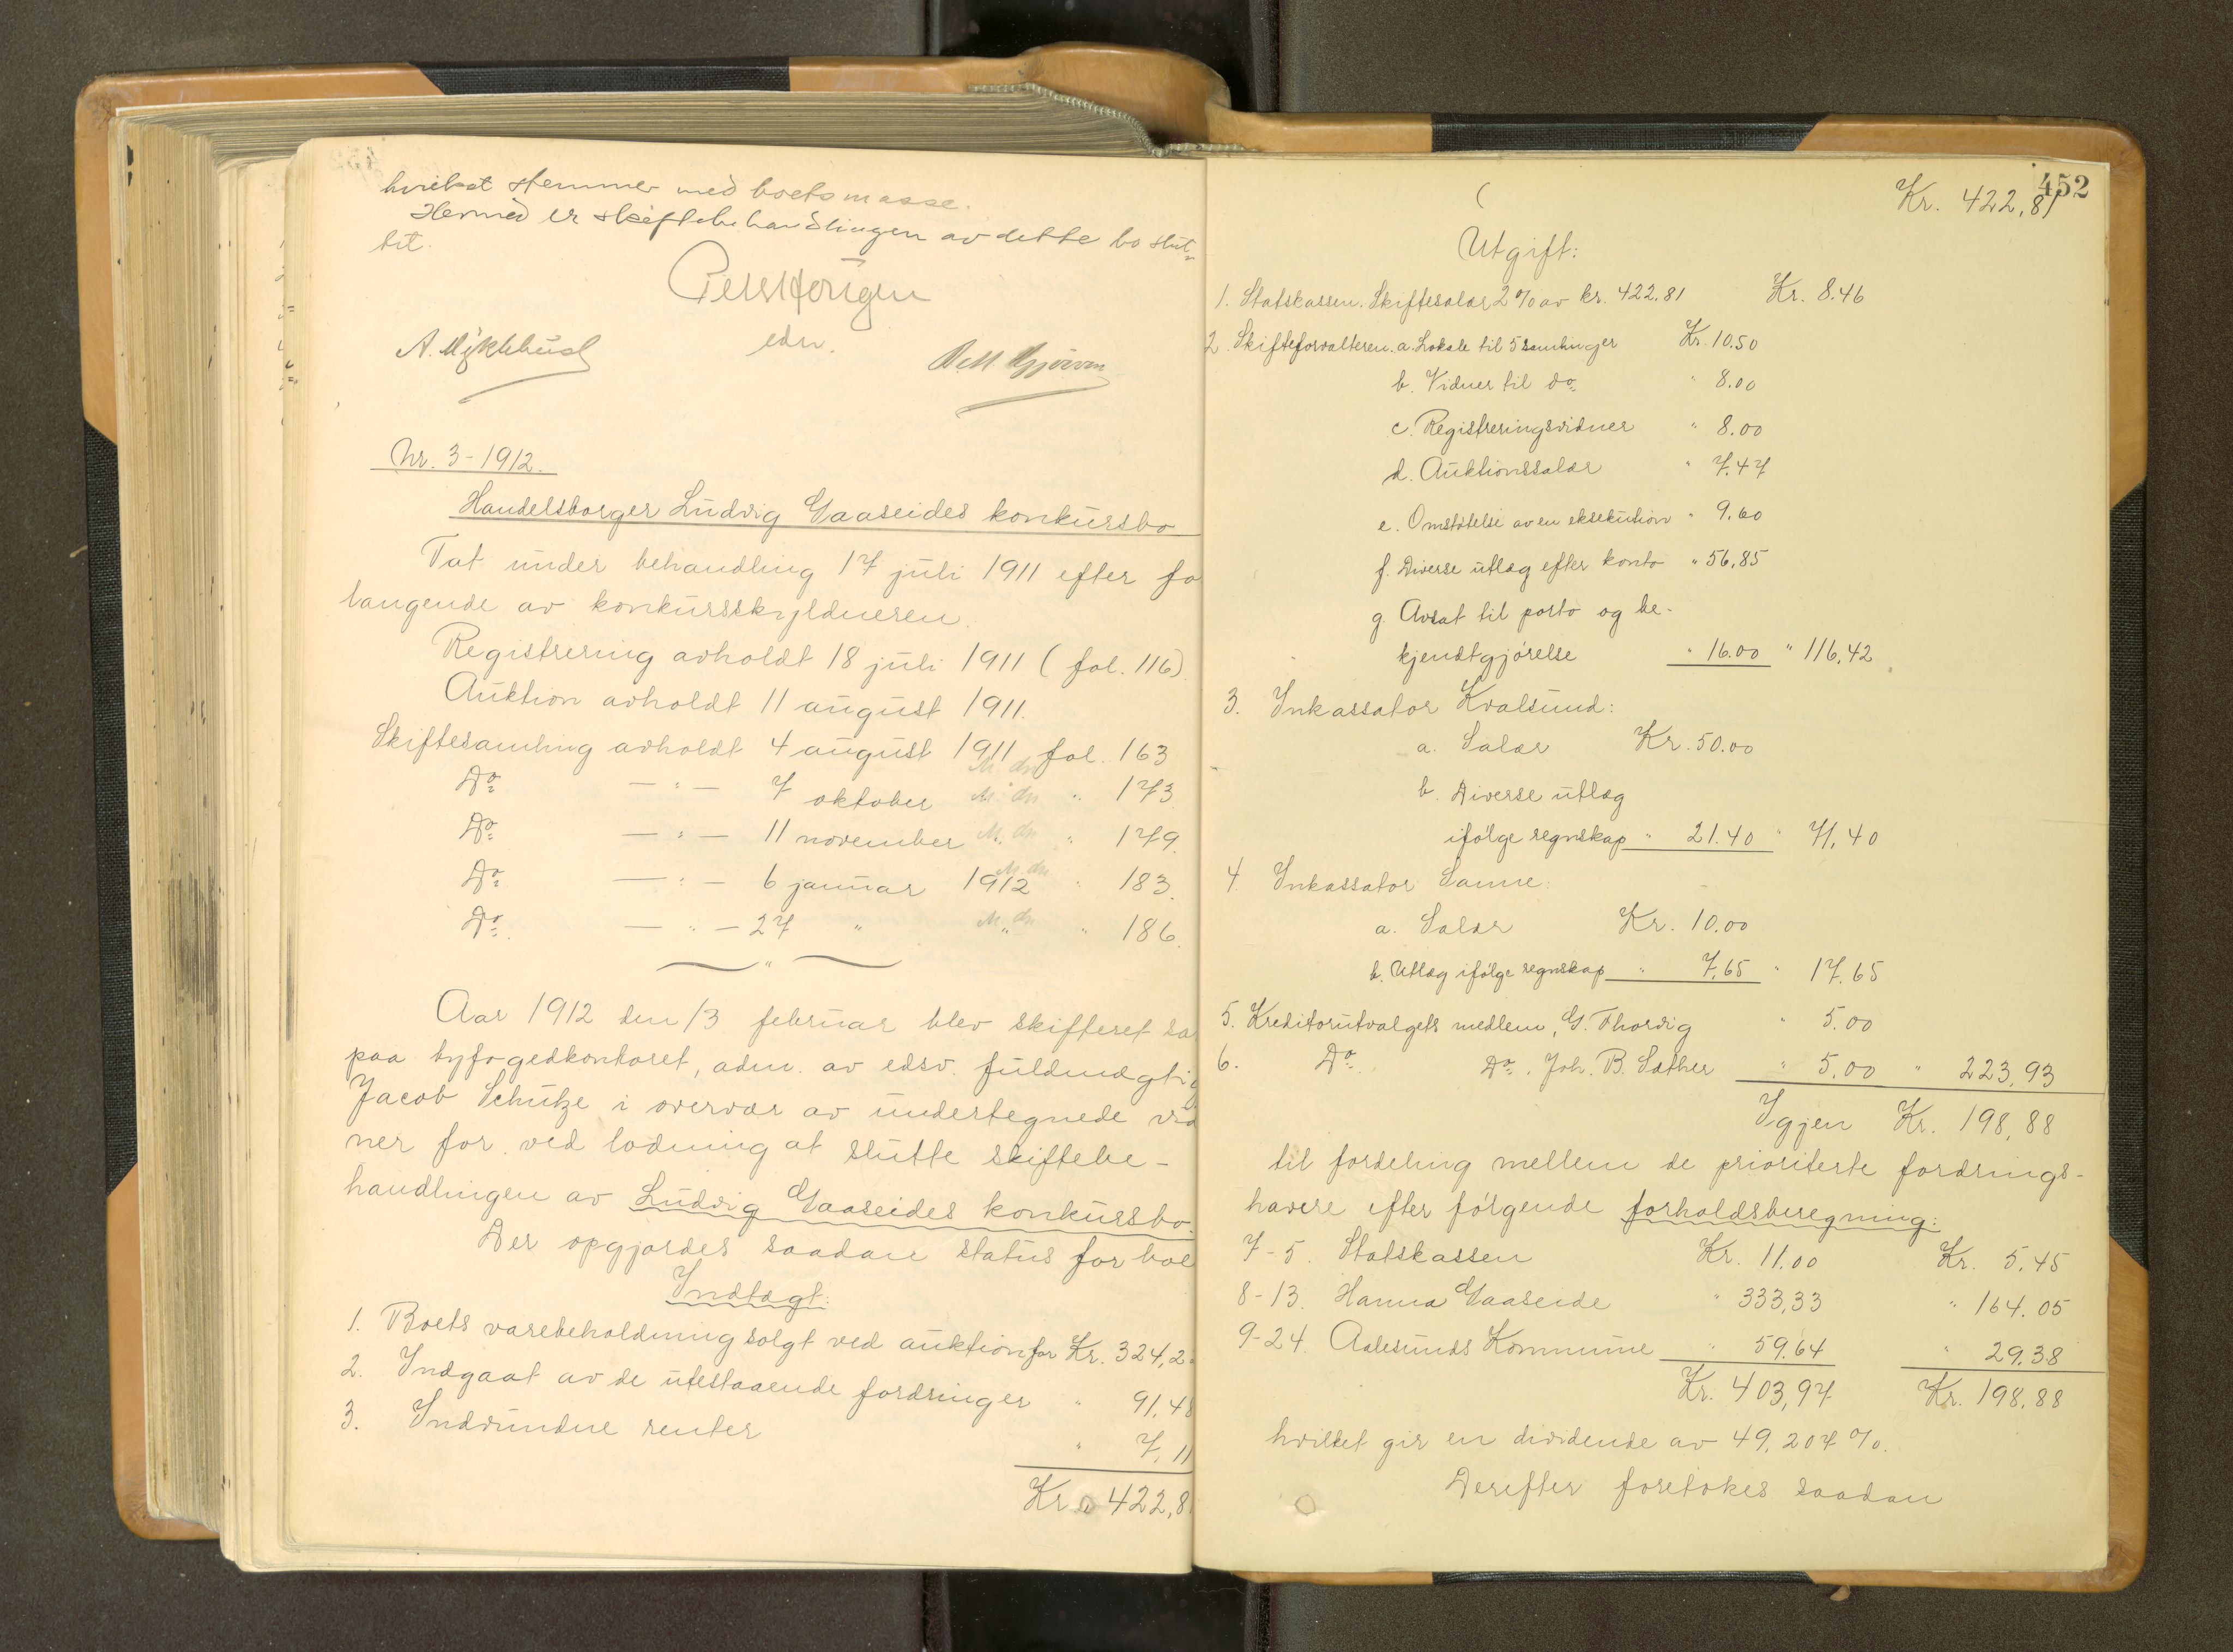 hvilket stemmer med boets masse.
Hermed er skiftebehandlingen av dette bo slut-
tet.
edsv.
A. Myklebust
Nr. 3-1912.
Handelsborger Ludvig Gaaseides konkursbo
Tat under behandling 17 juli 1911 efter fo
langende av konkursskyldneren.
Registrering avholdt 18 juli 1911 (fol. 116).
Auktion avholdt 11 august 1911.
Skiftesamling avholdt 4 august 1911 fol. 163
Do — " — 7 oktober " " 173
Do — " — 11 november " " 179.
Do — " — 6 januar 1912 " 183.
Do. — " — 27 " " " 186.
Aar 1912 den 13 februar blev skifteret sa
paa byfogedkontoret, adm. av edsv. fuldmægtig
Jacob Schütze i overvær av undertegnede vid
ner for ved lodning at slutte skiftebe-
handlingen av Ludvig Gaaseides konkursbo.
Der opgjordes saadan status for boe
Indtægt:
1. Boets varebeholdning solgt ved auktion for Kr. 324,2
2. Indgaat av de utestaaende fordringer " 91,48
3. Indvundne renter " 7,11
Kr. 422,8
452
Kr. 422,81
Utgift:
1. Statskassen. Skiftesalær 2% av kr. 422.81 Kr. 8.46
2. Skifteforvalteren. a. Lokale til 5 samlinger Kr. 10.50
b. Vidner til do " 8.00
c. Registreringsvidner " 8.00
d. Auktionssalær " 7.47
e. Omstøtelse av en eksekution " 9.60
f. Diverse utlæg efter konto " 56,85
g. Avsat til porto og be-
kjendtgjørelse " 16.00 " 116,42
3. Inkassator Kvalsund:
a. Salær Kr. 50.00
b. Diverse utlæg
ifølge regnskap " 21.40 " 71,40
4. Inkassator Sanne:
a. Salær Kr. 10.00
b. Utlæg ifølge regnskap " 7,65 " 17.65
5. Kreditorutvalgets medlem, G. Thorvig " 5.00
6. Do. Do. Joh. B. Sæther " 5.00 " 223,93
Igjen Kr. 198,88
til fordeling mellem de prioriterte fordrings-
havere efter følgende forholdsberegning:
7-5. Statskassen Kr. 11.00 Kr. 5.45
8-13. Hanna Gaaseide " 333,33 " 164.05
9-24. Aalesunds Kommune " 59.64 " 29.38
Kr. 403,97 Kr. 198.88
hvilket gir en dividende av 49,207 %.
Derefter foretokes saadan